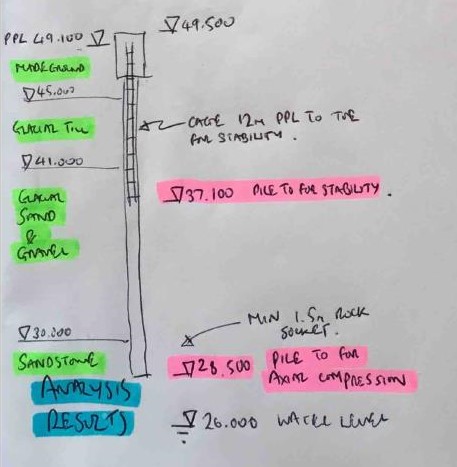 49.500
PPL 49.100
MADE GROUND
45.000
CAGE 12m PPL TO TOE
FOR STABILITY.
GLACIAL TILL
41.000
37.100 PILE TO FOR STABILITY.
GLACIAL
SAND
&
GRAVEL
MIN 1.5m ROCK
SOCKET.
30.000
SANDSTONE
28.500 PILE TO FOR
AXIAL COMPRESSION
ANALYSIS
RESULTS
26.000 WATER LEVEL